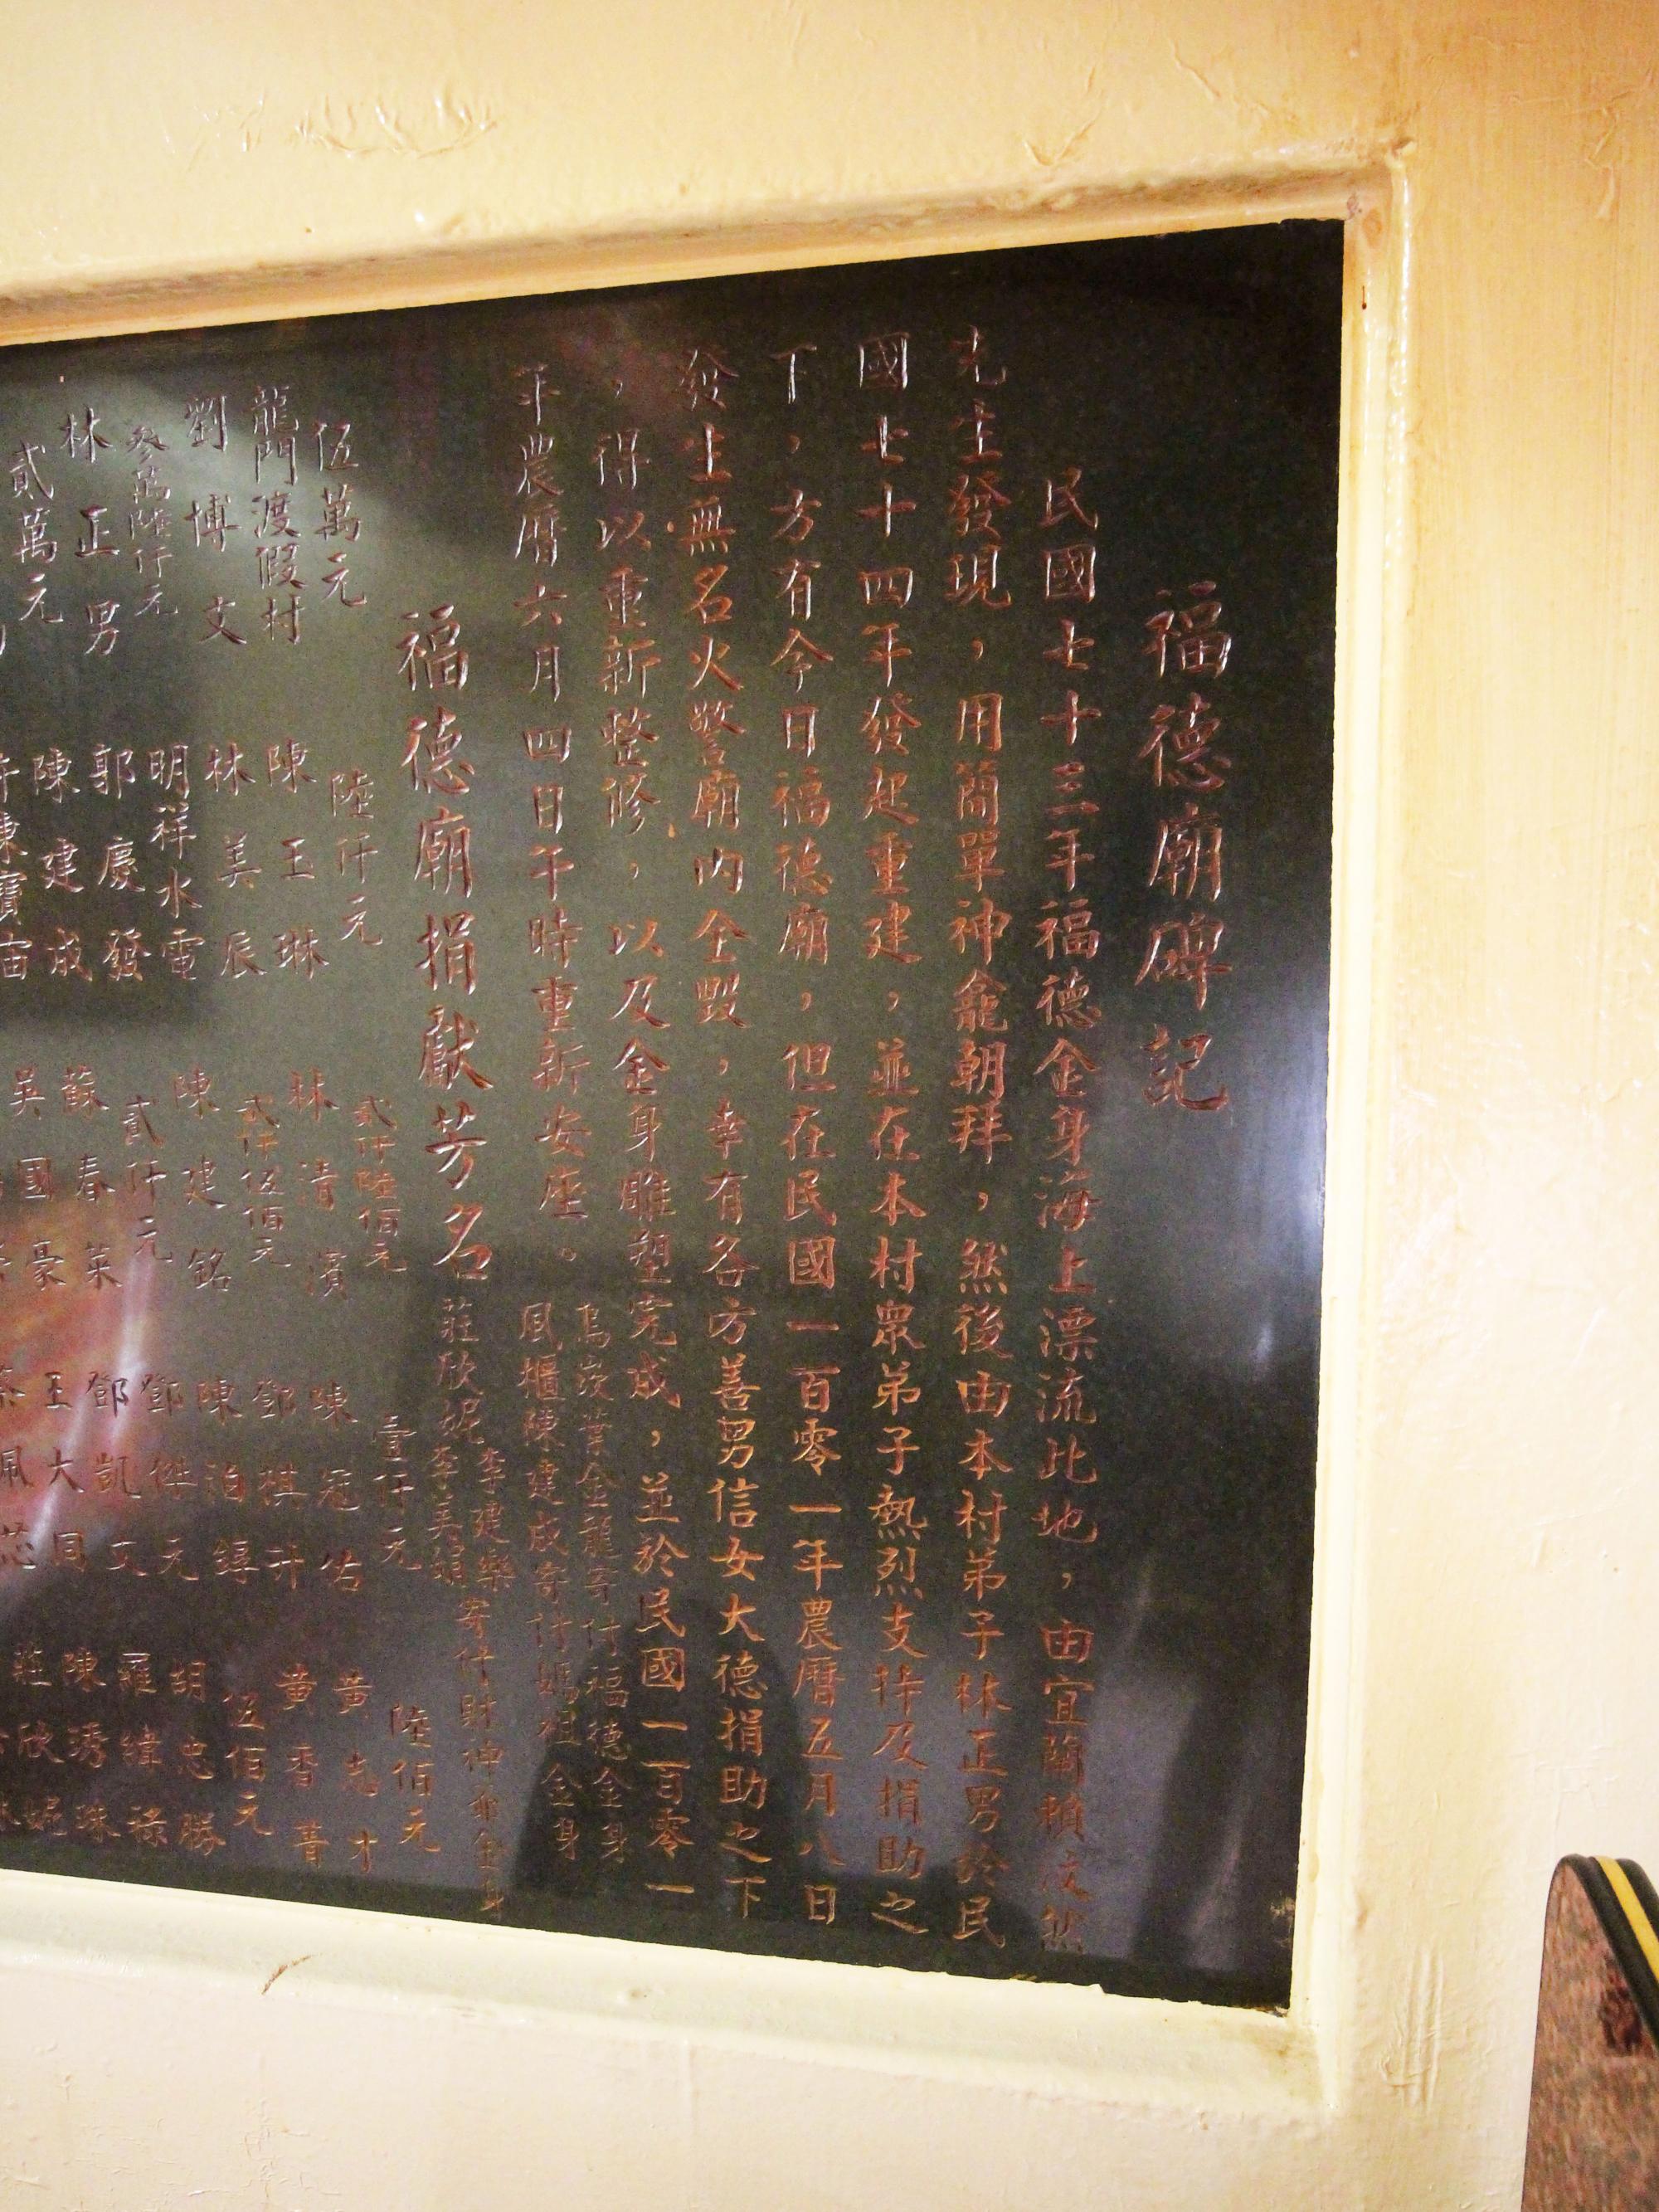 福德廟碑記
民國七十三年福德金身海上漂流此地，由宜蘭賴汶然
先生發現，用簡單神龕朝拜，然後由本村弟子林正男於民
國七十四年發起重建，並在本村眾弟子熱烈支持及捐助之
下，方有今日福德廟，但在民國一百零一年農曆五月八日
發生無名火警廟內全毀，幸有各方善男信女大德捐助之下
，得以重新整修，以及金身雕塑完成，並於民國一百零一
年農曆六月四日午時重新安座。
烏崁葉金龍寄付福德金身
風櫃陳建成寄付媽祖金身
福德廟捐獻芳名
李建樂
莊欣妮
李美娟
寄付財神爺金身
伍萬元
龍門渡假村
劉博文
參萬陸仟元
林正男
貳萬元
陸仟元
陳玉琳
林美辰
明祥水電
郭慶發
陳建成
貳仟陸佰元
林清濱
貳仟伍佰元
陳建銘
貳仟元
蘇春菜
吳國豪
壹仟元
陳冠佑
鄧祺升
陳泊錞
鄧傑元
鄧凱文
王大同
陸佰元
黃志才
黃香菁
伍佰元
胡忠勝
羅緯祿
陳琇珠
莊欣妮